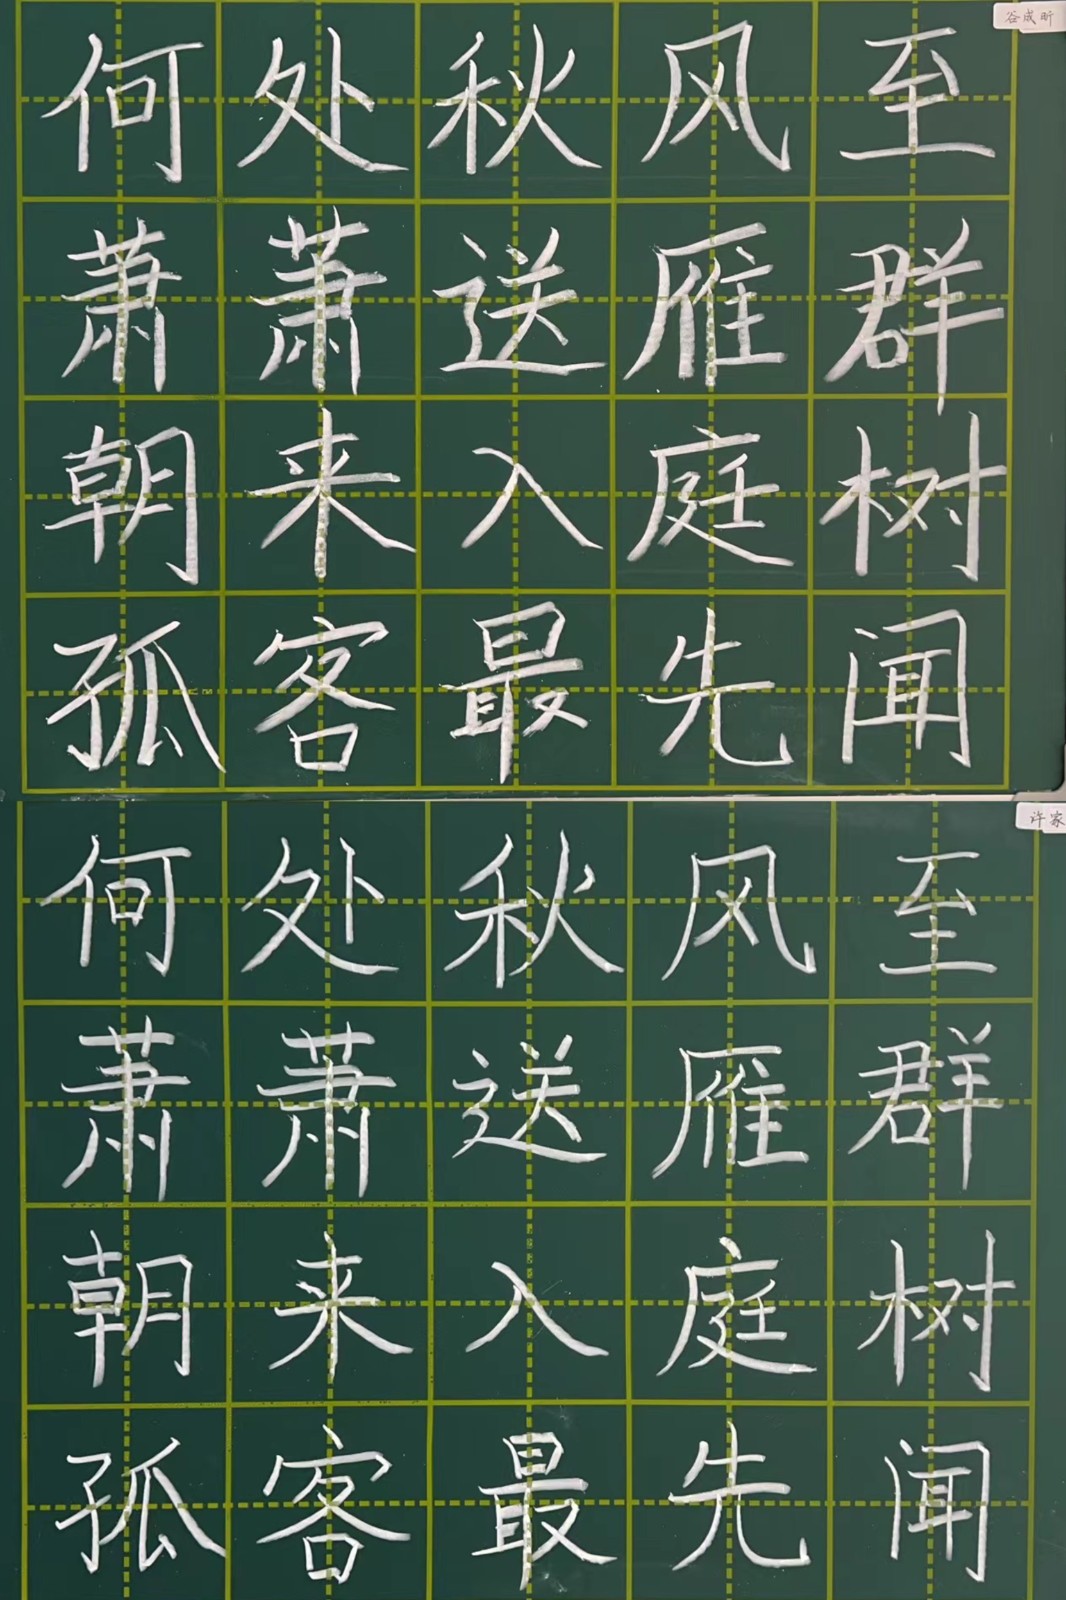 谷成昕
何处秋风至
萧萧送雁群
朝来入庭树
孤客最先闻
许家
何处秋风至
萧萧送雁群
朝来入庭树
孤客最先闻